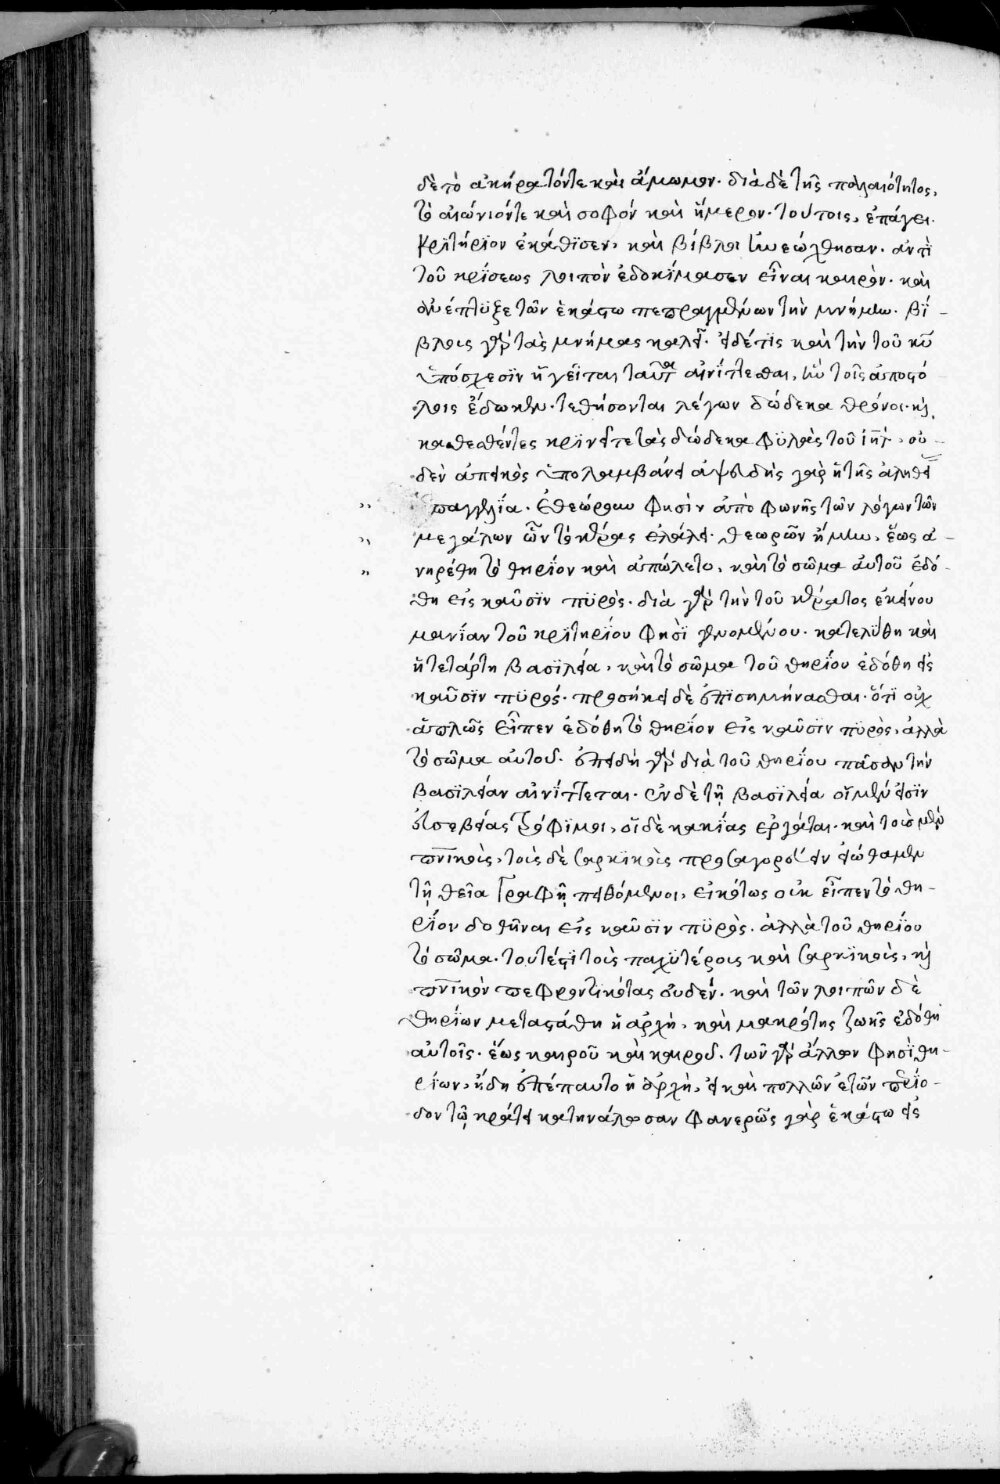 δὲ τὸ ἀκήρατόν τε καὶ ἄμωμον· διὰ δὲ τῆς παλαιότητος,
τὸ αἰώνιόν τε καὶ σοφὸν καὶ ἥμερον· τούτοις, ἐπάγει
κριτήριον ἐκάθϊσεν, καὶ βίβλοι ἠνεώχθησαν· ἀντὶ
τοῦ κρΐσεως λοιπὸν ἐδοκίμασεν εἶναι καιρὸν· καὶ
ἀνέπτϋξε τῶν ἑκάστω πεπραγμένων τὴν μνήμην· βί-
βλοις γὰρ τὰς μνήμας καλεῖ· εἰ δέ τϊς καὶ τὴν τοῦ κυ
ὑπόσχεσϊν ἡγεῖται ταῦτα αἰνίττεσθαι, ἣν τοῖς ἀποστό-
λοις ἔδωκεν· τεθήσονται λέγων δώδεκα θρόνοι· κỳ
καθεσθέντες κρϊνεῖτε τὰς δώδεκα φϋλὰς τοῦ ιηλ· οὐ-
δὲν ἀπεικὸς ὑπολαμβάνει ἀψευδὴς γὰρ ἡ τῆς ἀληθεί
ἐπαγγελΐα· ἐθεώρουν φησὶν ἀπὸ φωνῆς τῶν λόγων τῶν
μεγάλων ὧν τὸ κέρας ἐλάλει· θεωρῶν ἤμην, ἕως ἀ-
νηρέθη τὸ θηρΐον καὶ ἀπώλετο, καὶ τὸ σῶμα αὐτοῦ ἐδό-
θη εἰς καῦσϊν πϋρὸς· διὰ γὰρ τὴν τοῦ κέρατος ἐκείνου
μανΐαν τοῦ κρϊτηρΐου φησϊ γενομένου· κατελύθη καὶ
ἡ τετάρτη βασϊλεία, καὶ τὸ σῶμα τοῦ θηρΐου ἐδόθη εἰς
καῦσϊν πϋρός· προσήκει δὲ ἐπϊσημήνασθαι· ὅτϊ οὐχ
ἁπλῶς εἶπεν ἐδόθη τὸ θηρΐον εἰς καῦσϊν πϋρὸς, ἀλλὰ
τὸ σῶμα αὐτοῦ· ἐπειδὴ γὰρ διὰ τοῦ θηρΐου πᾶσαν τὴν
βασϊλείαν αἰνίττεται· ἐν δὲ τῇ βασϊλεία οἱ μὲν εἰσϊν
εὐσεβείας τρόφϊμοι, οἱ δὲ κακΐας ἐργάται· καὶ τοὺς μὲν
πνϊκοὺς, τοὺς δὲ σαρκϊκοὺς προσαγορεύειν εἰώθαμεν
τῇ θεία γραφῇ πειθόμενοι, εἰκότως οὐκ εἶπεν τὸ θη-
ρΐον δοθῆναι εἰς καῦσϊν πϋρὸς· ἀλλὰ τοῦ θηρΐου
τὸ σῶμα· τουτέστϊ τοὺς παχϋτέρους καὶ σαρκϊκοὺς, κỳ
πνϊκὸν πεφροντϊκότας οὐδέν· καὶ τῶν λοιπῶν δὲ
θηρΐων μετεστάθη ἡ ἀρχὴ, καὶ μακρότης ζωῆς ἐδόθη
αὐτοῖς· ἕως καιροῦ καὶ καιροῦ· τῶν γὰρ ἄλλων φησϊ θη-
ρΐων, ἤδη ἐπέπαυτο ἡ ἀρχὴ, εἰ καὶ πολλῶν ἐτῶν περΐο-
δον τῷ κράτει κατηνάλωσαν φανερῶς γὰρ ἑκάστω εἰς